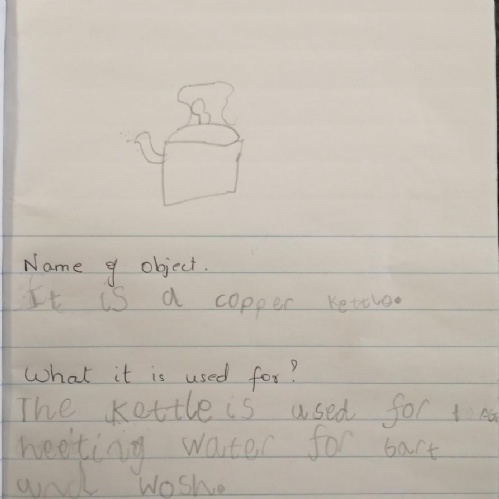 Name of object.
It is a copper kettle.
What it is used for?
The kettle is used for tea
heeting water for bart
and wosh.